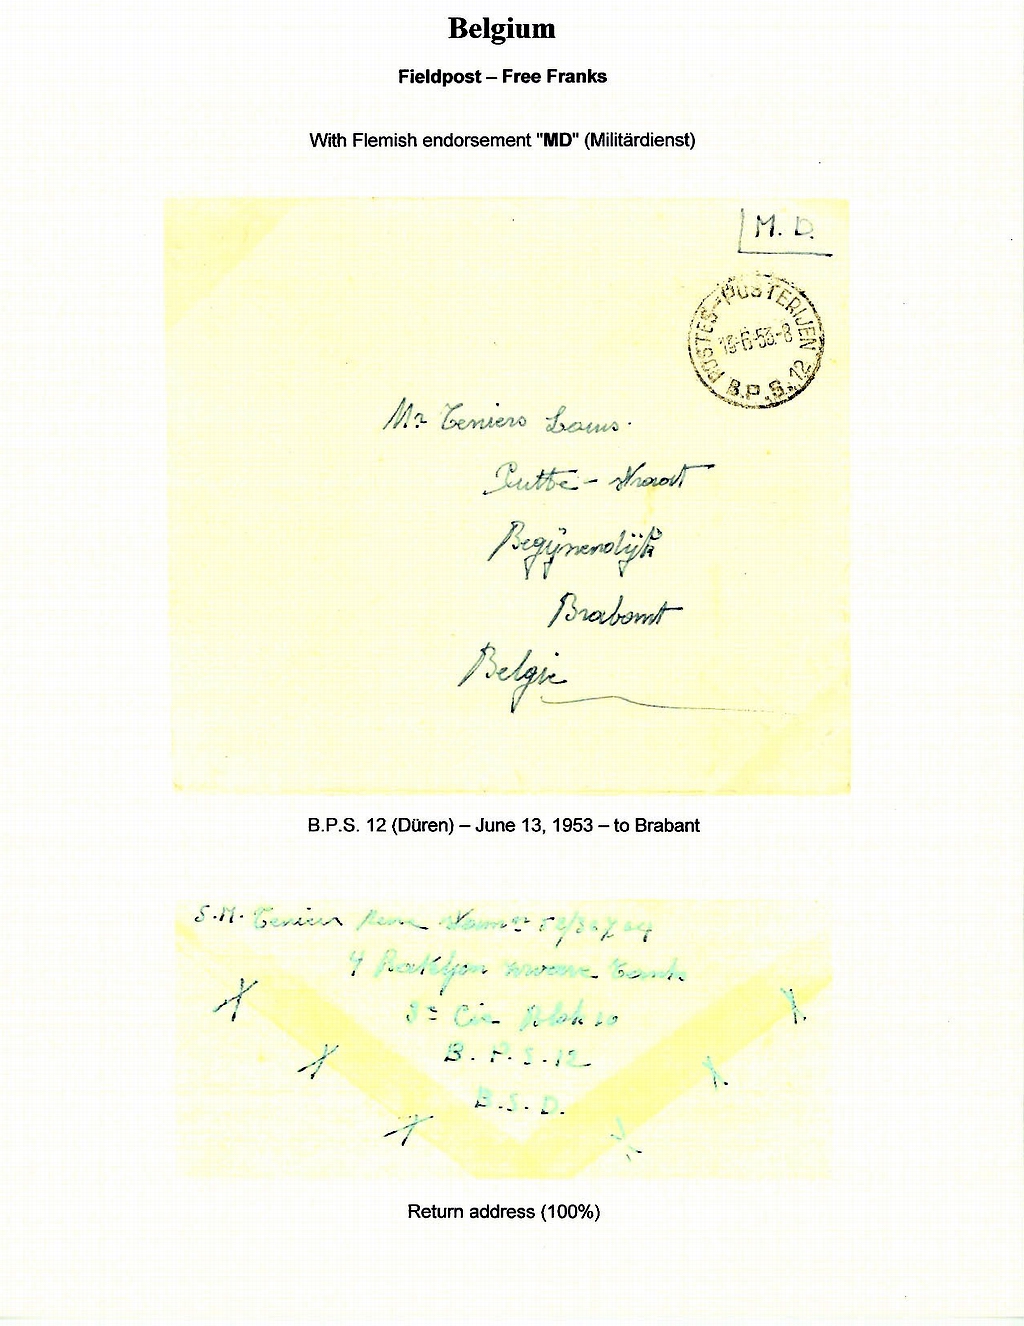 Belgium
Fieldpost – Free Franks
With Flemish endorsement "MD" (Militärdienst)
M. D.
POSTES-POSTERIJEN
13-6-53.-8
B.P.S.12
Mr Teniers Louis.
Putte - straat
Begijnendijk
Brabant
Belgie
B.P.S. 12 (Düren) – June 13, 1953 – to Brabant
S.M. Teniers Rene
4 Bataljon zware Tanks
3e Cie Blok 10
B. P. S. 12
B. S. D.
Return address (100%)